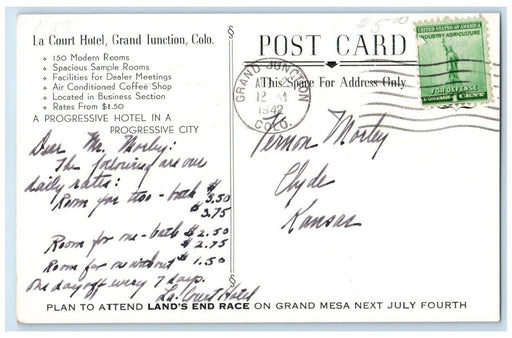 La Court Hotel, Grand Junction, Colo.
150 Modern Rooms
Spacious Sample Rooms
Facilities for Dealer Meetings
Air Conditioned Coffee Shop
Located in Business Section
Rates From $1.50
A PROGRESSIVE HOTEL IN A
PROGRESSIVE CITY
Dear Mr. Morley:
The following are our
daily rates:
Room for two - bath $3.50
$3.75
Room for one - bath $2.50
$2.75
Room for one without $1.50
One day off every 7 days.
La Court Hotel
POST CARD
This Space For Address Only
GRAND JUNCTION
12
1942
COLO.
UNITED STATES OF AMERICA
INDUSTRY AGRICULTURE
FOR DEFENSE
To
Vernon Morley
Clyde
Kansas
PLAN TO ATTEND LAND'S END RACE ON GRAND MESA NEXT JULY FOURTH